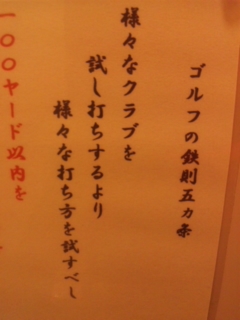 ゴルフの鉄則五カ条
様々なクラブを
試し打ちするより
様々な打ち方を試すべし
一〇〇ヤード以内を